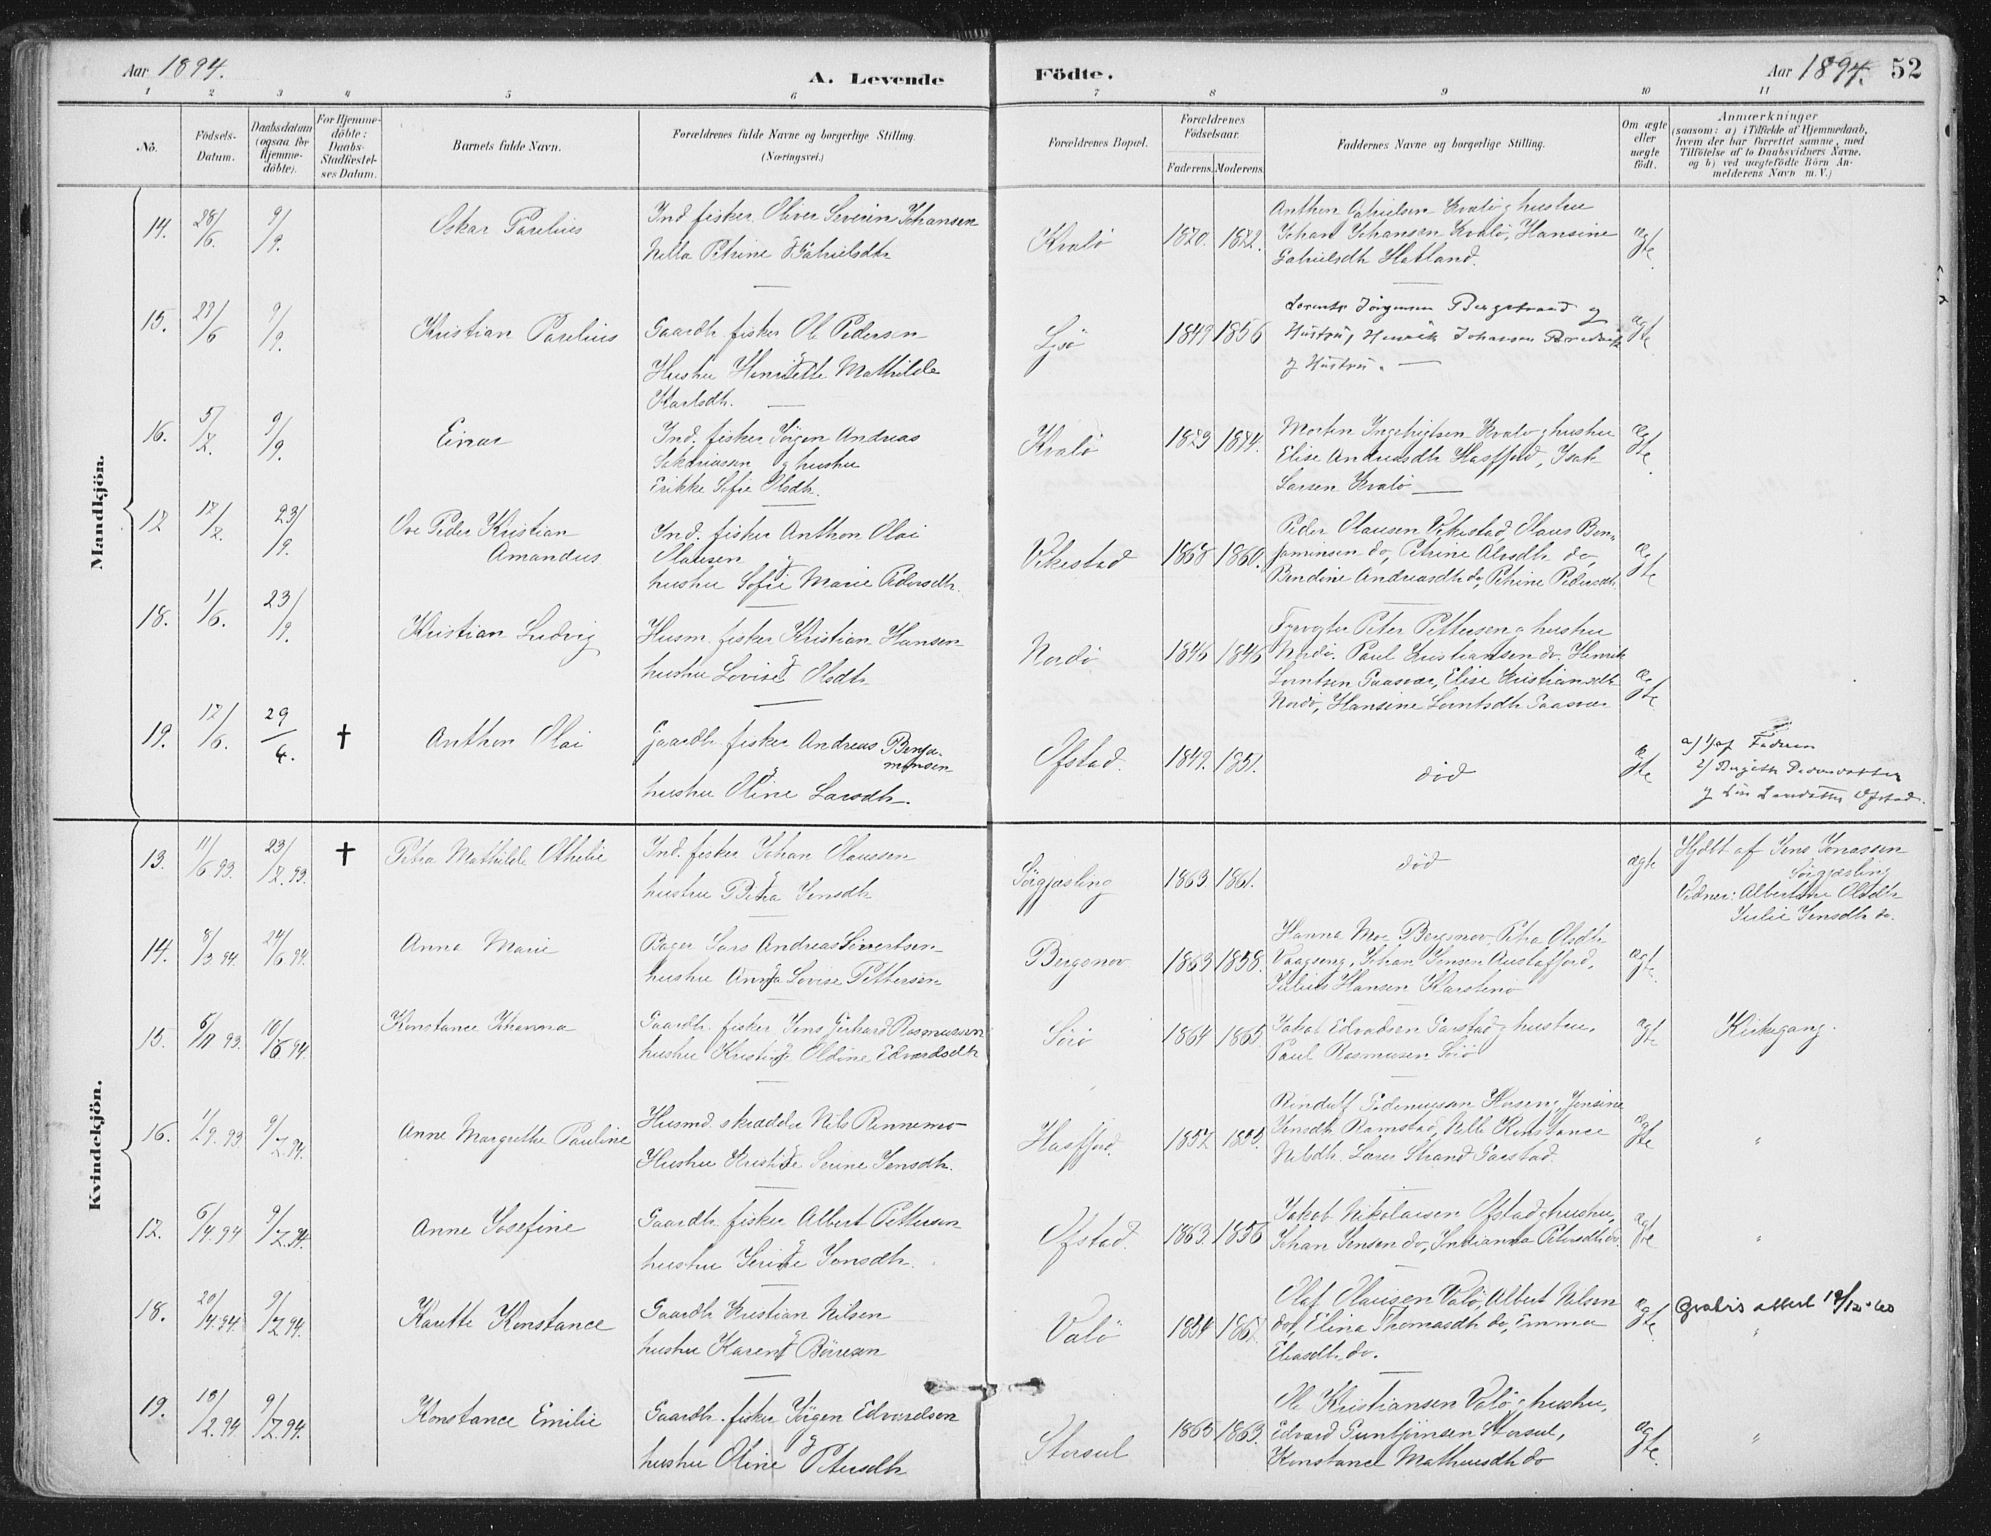 Aar 1894.
A. Levende
Födte.
Aar 1894. 52
1 2 3 4 5 6 7 8 9 10 11
No.
Födsels-
Datum.
Daabsdatum
(ogsaa for
Hjemme-
döbte).
For Hjemme-
döbte:
Daabs-
Stadfæstel-
ses Datum.
Barnets fulde Navn.
Forældrenes fulde Navne og borgerlige Stilling.
(Næringsvei.)
Forældrenes Bopæl.
Forældrenes
Födselsaar.
Faderens. Moderens.
Faddernes Navne og borgerlige Stilling.
Om ægte
eller
uægte
født.
Anmærkninger
(saasom: a) i Tilfælde af Hjemmedaab,
hvem der har forrettet samme, med
Tilföielse af to Daabsvidners Navne,
og b) ved uægtefödte Börn An-
melderens Navn m. V.)
Mandkjön.
14. 28/6. 9/9. Oskar Parelius
Ind. fisker Oliver Severin Johansen
Nella Petrine Gabrielsdtr
Kvalö 1870. 1872.
Anthon Gabrielsen Kvalö og hustru
Johan Johansen Kvalö, Hansine
Gabrielsdtr Hatland.
ægte
15. 29/6 9/9. Kristian Parelius
Gaardb. fisker Ole Pedersen
Hustru Henriette Mathilde
Karlsdtr.
1849 1856
Lorents Jörgensen Bergstrand og
Hustru, Henrik Johansen
og Hustru.
ægte
16. 5/7. 9/9. Einar
Ind. fisker Jörgen Andreas
Sakariassen og hustru
Erikke Sofie Olsdtr.
Kvalö
Morten Ingebrigtsen Kvalö og hustru
Elise Andreasdtr Hasfjord, Isak
Larsen Kvalö
ægte
17 17/7. 23/9. Ove Peder Kristian
Amandus
Ind. fisker Anthon Olai
Olausen og
hustru Sofie Marie Pedersdtr.
Vikestad 1868 1860.
Peder Olausen Vikestad, Olaus Ben-
jaminsen do, Petrine Olsdtr do,
Bendine Andreasdtr do, Petrine Pedersdtr
ægte
18. 1/6. 23/9. Kristian Ludvig
Husm. fisker Kristian Hansen
hustru Lovise Olsdtr
Nordö 1846 1846
Fyrvogter Peter Pettersen og hustru
Nordö. Paul Kristiansen do. Henrik
Lorntsen Gaasvær, Elise Kristiansdtr
Nordö, Hansine Lorntsdtr Gaasvær
ægte
19. 17/6. 29/6. † Anthon Olai
Gaardb. fisker Andreas Benja-
minsen
hustru Oline Larsdtr.
Ofstad. 1849. 1851.
död
ægte
a) 1) af Faderen
2) Birgitte Pedersdatter
og Lise Larsdatter Ofstad.
Kvindekjön.
13. 11/6 93. 23/7. 93. † Petra Mathilde Othelie
Ind. fisker Johan Olaussen
hustru Petra Jensdtr
Sörgjæsling 1863. 1861.
död
ægte
Hjdbt af Jens Jonassen
Sörgjæsling
Vidner: Albertine Olsdtr
Julie Jensdtr do.
14. 8/3 94. 24/6 94. Anna Marie
Bager Lars Andreas Sivertsen
hustru Anna Lovise Pettersen
Bergsnov 1863 1858.
Hanna Moe Bergsnov, Petra Olsdtr
Vaagseng, Johan Jensen Austafjord,
Julius Hansen Karstenö
ægte
15. 6/11 93. 10/6 94. Konstance Johanna
Gaardb. fisker Jens Gerhard Rasmussen
hustru Kristine Oldine Edvardsdtr
Sörö 1864 1865.
Jakob Edvardsen Garstad og hustru,
Paul Rasmussen Sörö
ægte
Kirkegang.
16. 29/9. 93. 9/7. 94. Anne Margrethe Pauline
Husmd. skrædder Nils Rennemo
Hustru Kristine Serine Jensdtr.
Hasfjord. 1857 1855.
Jensine
Jensdtr Ramstad, Nelle Konstance
Nilsdtr. Lorer Strand Garstad.
ægte
"
17. 6/4. 94 9/7. 94. Anne Josefine
Gaardb. fisker Albert Pettersen
hustru Serine Jonsdtr.
Ofstad. 1863. 1856
Jakob Nikolaisen Ofstad og hustru,
Johan Jensen do, Indianna Petersdtr do.
ægte
"
18. 20/4. 94. 9/7. 94. Karette Konstance
Gaardb. Kristian Nilsen
hustru Karen Börresen
Valö 1854
Olaf Olausen Valö, Albert Nilsen
do, Elina Thomasdtr do, Emma
Eliasdtr do.
ægte
Gratis attest 19/12-40
"
19. 10/2. 94. 9/7. 94. Konstance Emilie
Gaardb. fisker Jörgen Edvardsen
hustru Oline Petersdtr
Storsul 1865 1863.
Ole Kristiansen Valö og hustru,
Edvard Guntjönsen Storsul,
Konstance Mathiasdtr do
ægte.
"